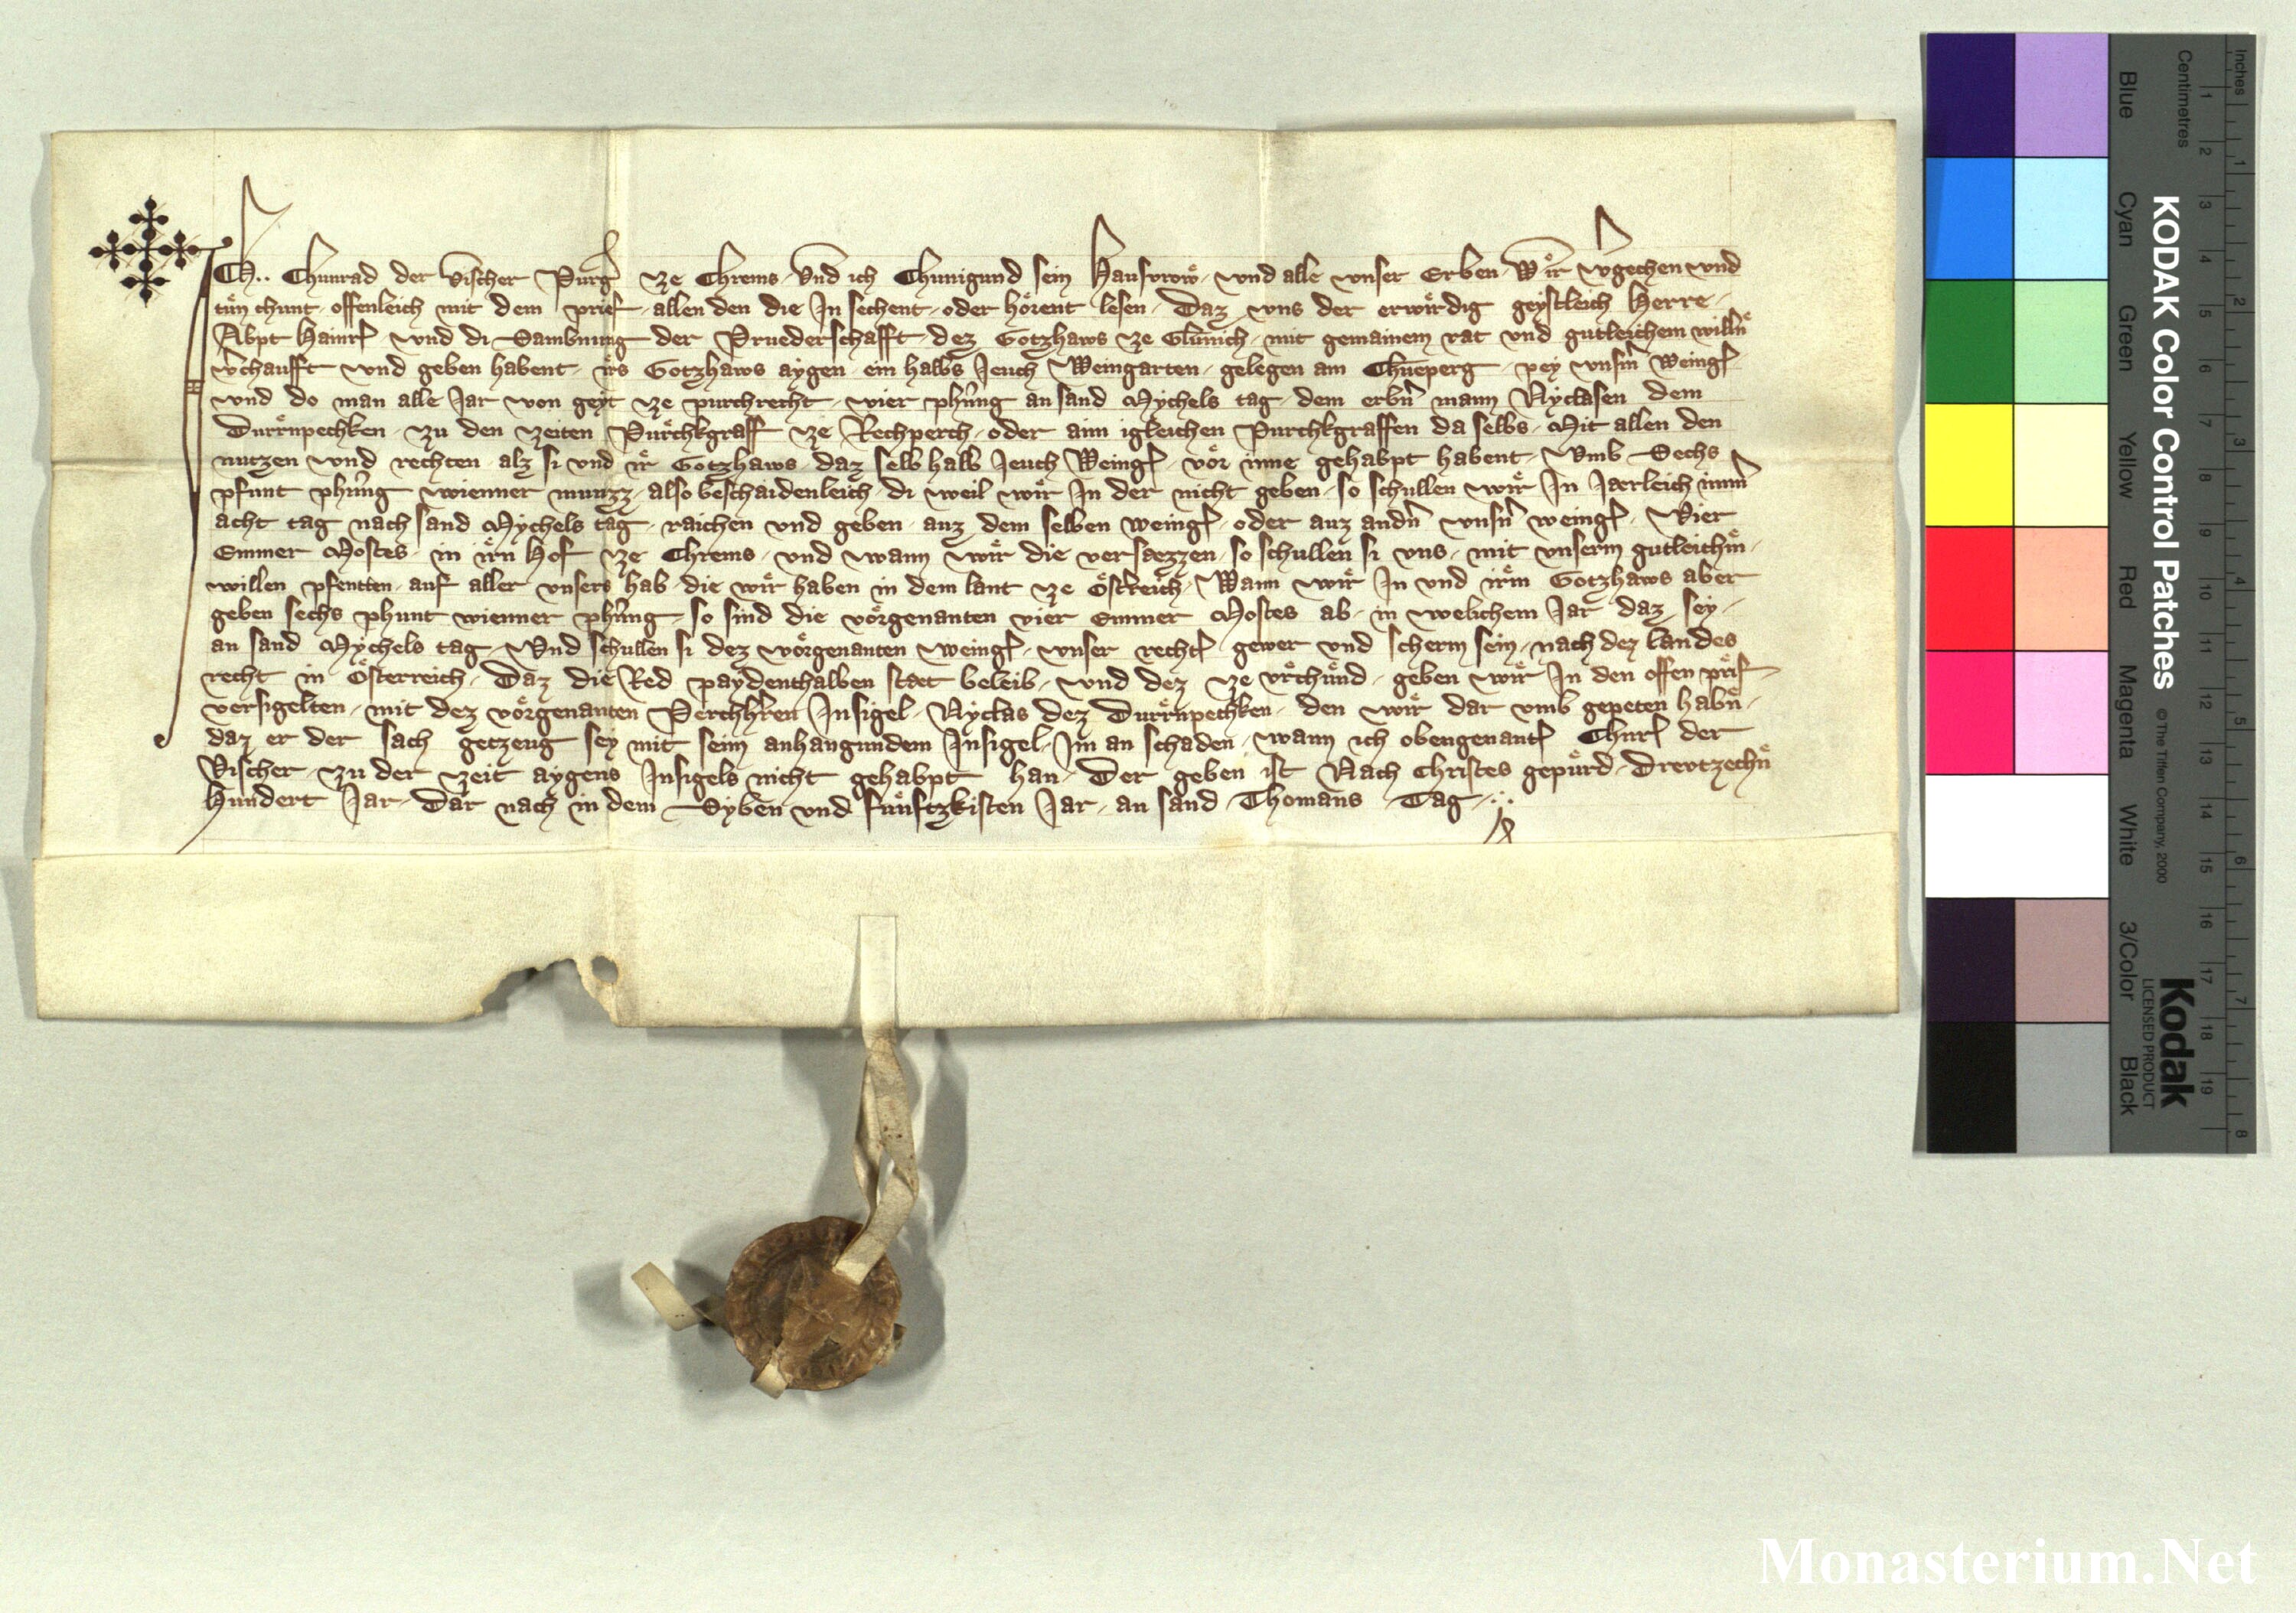 ICh.. Chunrad der Vischer Purg ze Chrems und ich Chunigund sein Hausvrow und alle unser Erben Wir vgechen und
tun chunt offenleich mit dem prief allen den die In sechent oder hörent lesen Daz uns der erwirdig geystleich Herre
Abpt Hainr und di Sambnung der Pruederschafft dez Gotzhaws ze Glunich mit gemainem rat und gutleichem willn
vchaufft und geben habent irs Gotzhaws aygen ein halbs Jeuch Weingarten gelegen am Chueperg pey unsm Weing
und do man alle Jar von geyt ze purchrecht vier phnng an sand Mychels tag dem erbn mann Nyclasen dem
Durrnpechken zu den zeiten Purchkgraff ze Rechperch oder aim igleichen Purchkgraffen da selbs Mit allen den
nutzen und rechten alz si und ir Gotzhaws daz selb halb Jeuch Weing vor inne gehabpt habent Umb Sechs
pfunt phnng wienner munzz also beschaidenleich di weil wir In der nicht geben so schullen wir In Jaerleich
acht tag nach sand Mychels tag raichen und geben auz dem selben weing oder auz andn unsn weing Vier
Emmer Mostes in irn Hof ze Chrems und wann wir die versaezzen so schullen si uns mit unserm gutleichm
willen pfentten auf aller unsers hab die wir haben in dem lant ze Östreich Wann wir In und irm Gotzhaws aber
geben sechs phunt wienner phnng so sind die vorgenanten vier Emmer Mostes ab in welichem Jar daz sey
an sand Mychels tag Und schullen si dez vorgenanten weing unser recht gewer und scherm sein nach dez landes
recht in Österreich Daz die Red paydenthalben staet beleib und dez ze urchund geben wir In den offen prif
versigelten mit dez vorgenanten Perchhren Insigel Nyclas dez Durrnpechken den wir dar umb gepeten habn
daz er der sach getzeug sey mit seim anhangundem Insigel Im an schaden wann ich obengenant Chunr der
Vischer zu der zeit aygens Insigels nicht gehabpt han Der geben ist Nach Christes gepurd Drevtzechn
Hundert Jar Dar nach in dem Syben und funftzkisten Jar an sand Thomans Tag
KODAK Color Control Patches
© The Tiffen Company, 2000
Kodak
LICENSED PRODUCT
Blue Cyan Green Yellow Red Magenta White 3/Color Black
Centimetres 1 2 3 4 5 6 7 8 9 10 11 12 13 14 15 16 17 18 19
Inches 1 2 3 4 5 6 7 8
Monasterium.Net